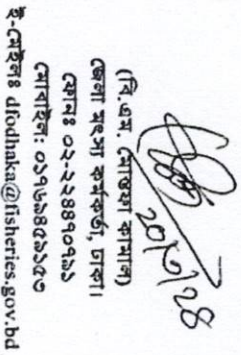 ২০/৩/২৪
(বি.এম. মোস্তফা কামাল)
জেলা মৎস্য কর্মকর্তা, ঢাকা।
ফোনঃ ০২-২২৪৪৭০৭৯৯
মোবাইল: ০১৭৬৯৪৫৯৯৫৩
ই-মেইলঃ dfodhaka@fisheries.gov.bd